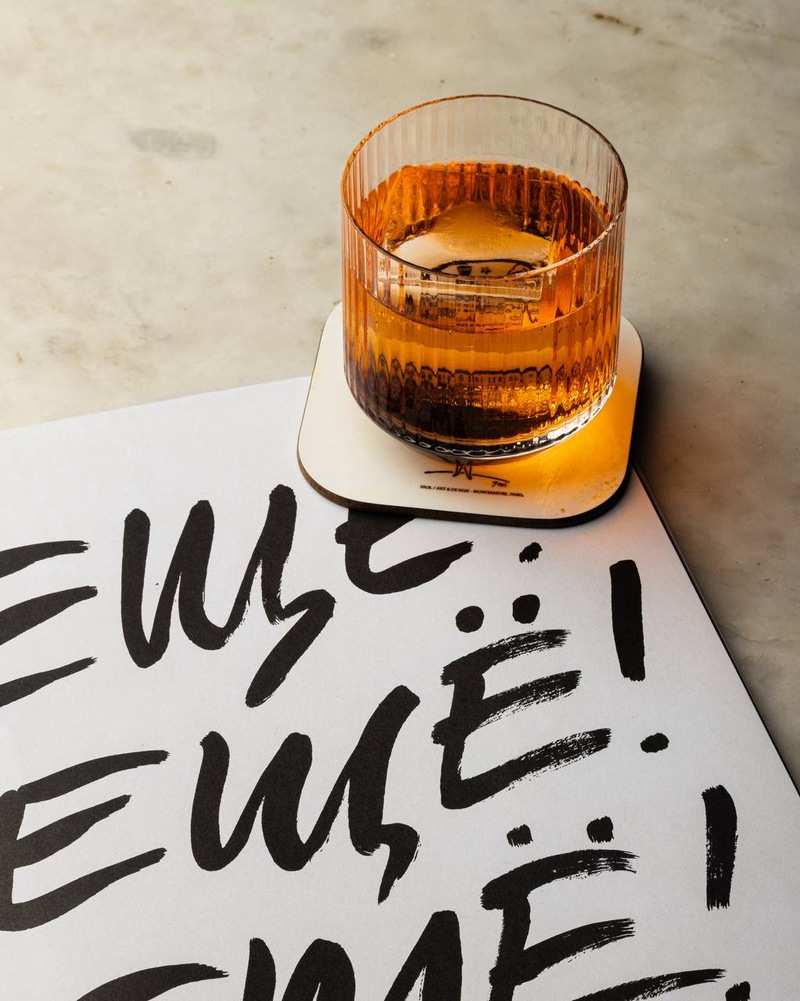 PAUL / ART & DESIGN - MONTMARTRE, PARIS.
ЕЩЁ!
ЕЩЁ!
ЕЩЁ!